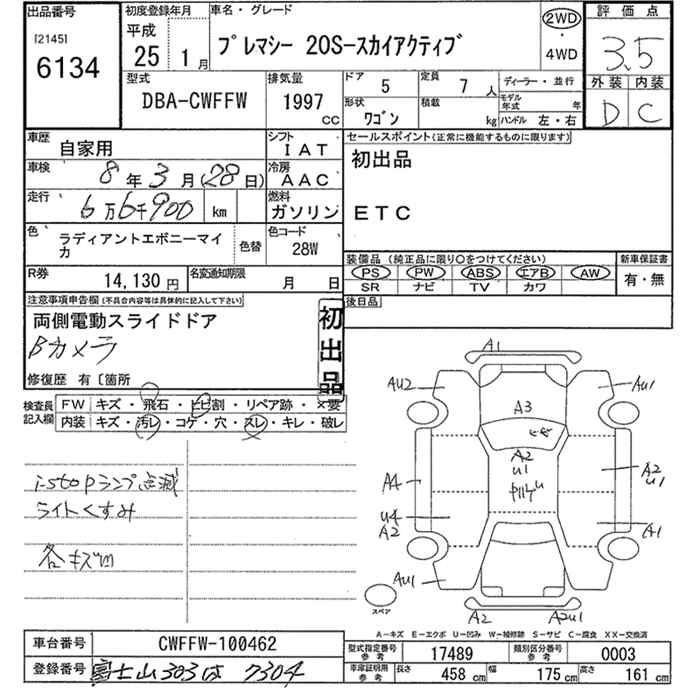 出品番号
[2145]
6134
初度登録年月
平成
25 1月
車名・グレード
プレマシー 20S-スカイアクティブ
2WD
・
4WD
評価点
3.5
外装 内装
D C
型式
DBA-CWFFW
排気量
1997
cc
ドア
5
定員
7人
ディーラー・並行
形状
ワゴン
積載
kg
モデル年式 年
ハンドル 左・右
車歴
自家用
シフト
IAT
車検
8年3月(28日)
冷房
AAC
走行
6万6千900 km
燃料
ガソリン
色
ラディアントエボニーマイカ
色替
色コード
28W
R券
14,130円
名変通知期限
月 日
セールスポイント(正常に機能するものに限ります)
初出品
ETC
装備品(純正品に限り○をつけてください)
PS PW ABS エアB AW
SR ナビ TV カワ
新車保証書
有・無
後日品
注意事項申告欄(不具合内容等は具体的に記入して下さい)
両側電動スライドドア
Bカメラ
修復歴 有〔箇所
初出品
検査員記入欄
FW キズ・飛石・ヒビ割・リペア跡・×要
内装 キズ・汚レ・コゲ・穴・スレ・キレ・破レ
i-stopランプ点滅
ライトくすみ
各キズ凹
A1
AU2
AU1
A3
A2
U1
A4
A2
U1
U4
A2
A1
AU1
スペア
A2
A2U1
A-キズ E-エクボ U-凹み W-補修跡 S-サビ C-腐食 XX-交換済
車台番号
CWFFW-100462
登録番号
富士山303は7304
型式指定番号
参考
17489
類別区分番号
参考
0003
車庫証明用
参考
長さ
458 cm
幅
175 cm
高さ
161 cm